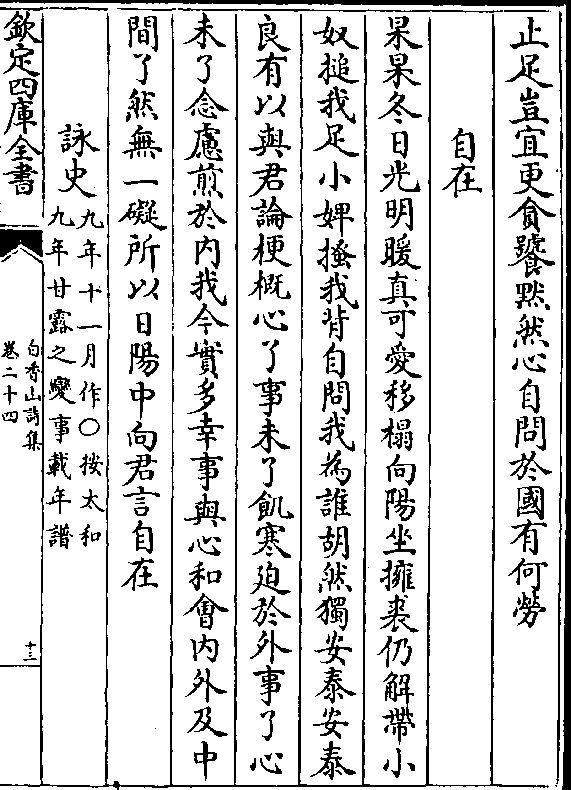 止足豈宜更貪饕黙然心自問於國有何勞
自在
杲杲冬日光明暖真可愛移榻向陽坐擁裘仍解帶小
奴搥我足小婢搔我背自問我為誰胡然獨安泰安泰
良有以與君論梗概心了事未了飢寒廹於外事了心
未了念慮煎於内我今實多幸事與心和會内外及中
間了然無一礙所以日陽中向君言自在
詠史九年十一月作○按太和
九年甘露之變事載年譜
欽定四庫全書
白香山詩集
卷二十四
十三